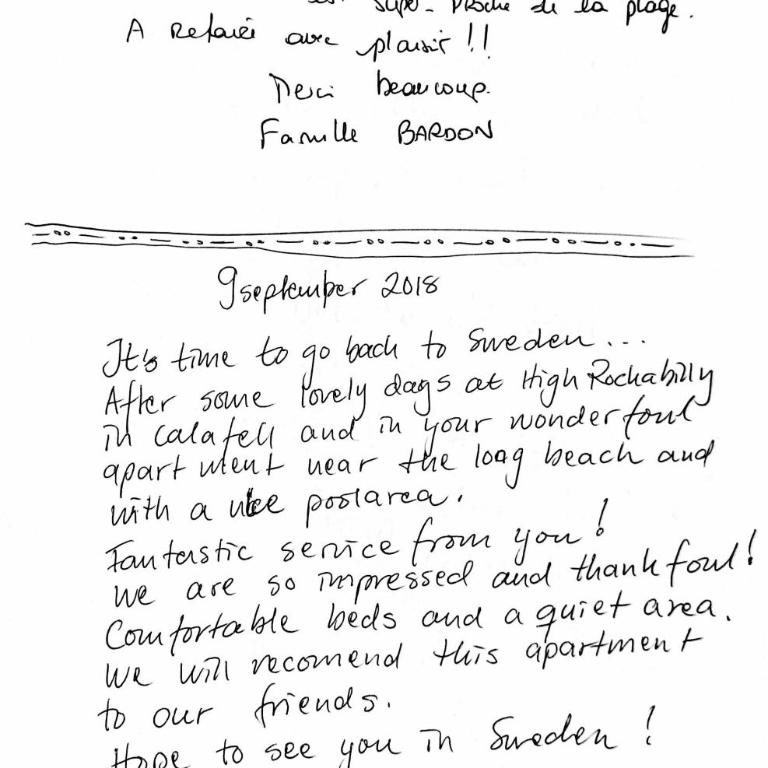 super-proche de la plage.
A Refaire avec plaisir !!
Merci beaucoup.
Famille BARDON
9 september 2018
It's time to go back to Sweden...
After some lovely days at High Rockabilly
in calafell and in your wonderfoul
apartment near the long beach and
with a nice poolarea.
Fantastic service from you!
We are so impressed and thankfoul!
Comfortable beds and a quiet area.
We will recomend this apartment
to our friends.
Hope to see you in Sweden!